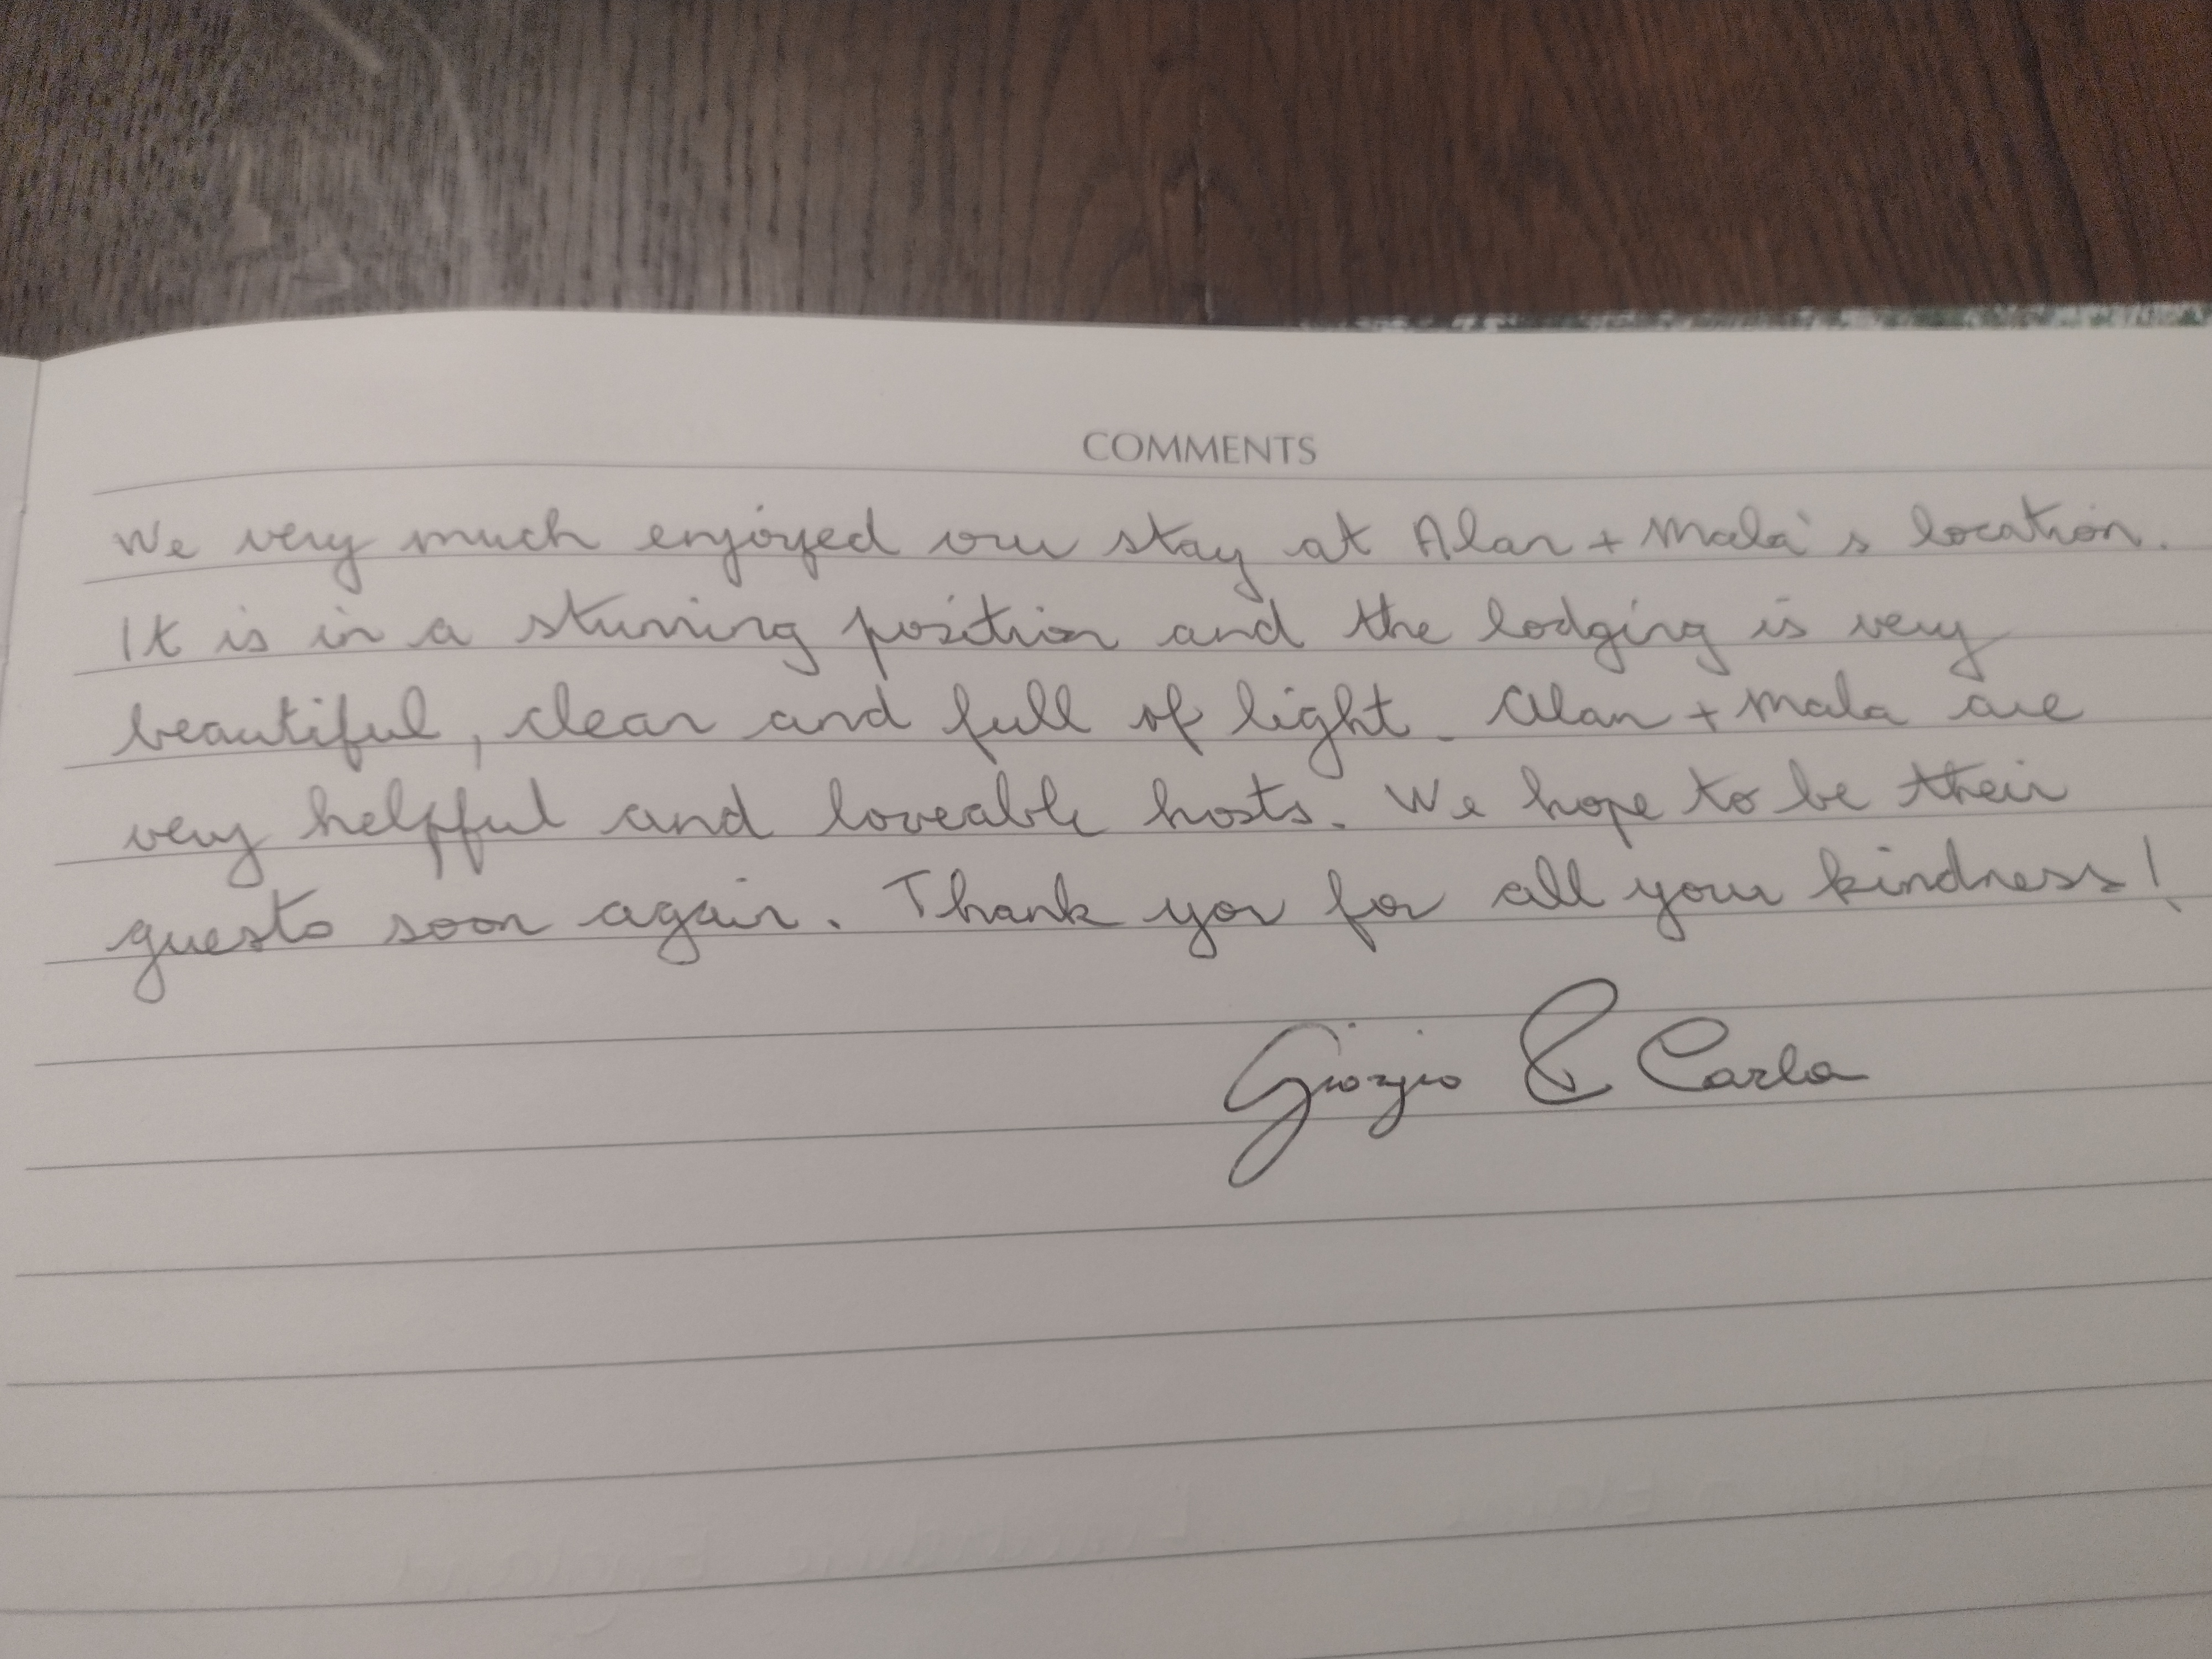 COMMENTS
We very much enjoyed our stay at Alan + Mala's location.
It is in a stunning position and the lodging is very
beautiful, clean and full of light. Alan + Mala are
very helpful and loveable hosts. We hope to be their
guests soon again. Thank you for all your kindness!
Giorgio & Carla